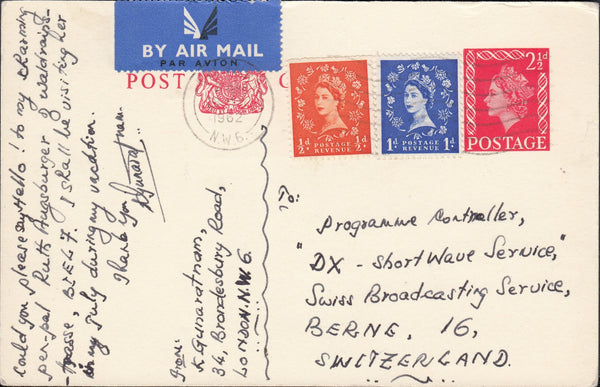 BY AIR MAIL
PAR AVION
POST C
1962
N.W.6.
½d ½d
POSTAGE
REVENUE
1d 1d
POSTAGE
REVENUE
2½d
POSTAGE
Could you please say Hello! to my charming
pen-pal Ruth Augsburger of Waldrain-
-strasse, BIEL 7. I shall be visiting her
in my July during my vacation.
Thank you
KGunaratnam.
From:
K Gunaratnam,
34, Brondesbury Road,
LONDON. N.W.6.
To:
Programme Controller,
"DX - Short Wave Service,"
Swiss Broadcasting Service,
BERNE, 16,
SWITZERLAND.